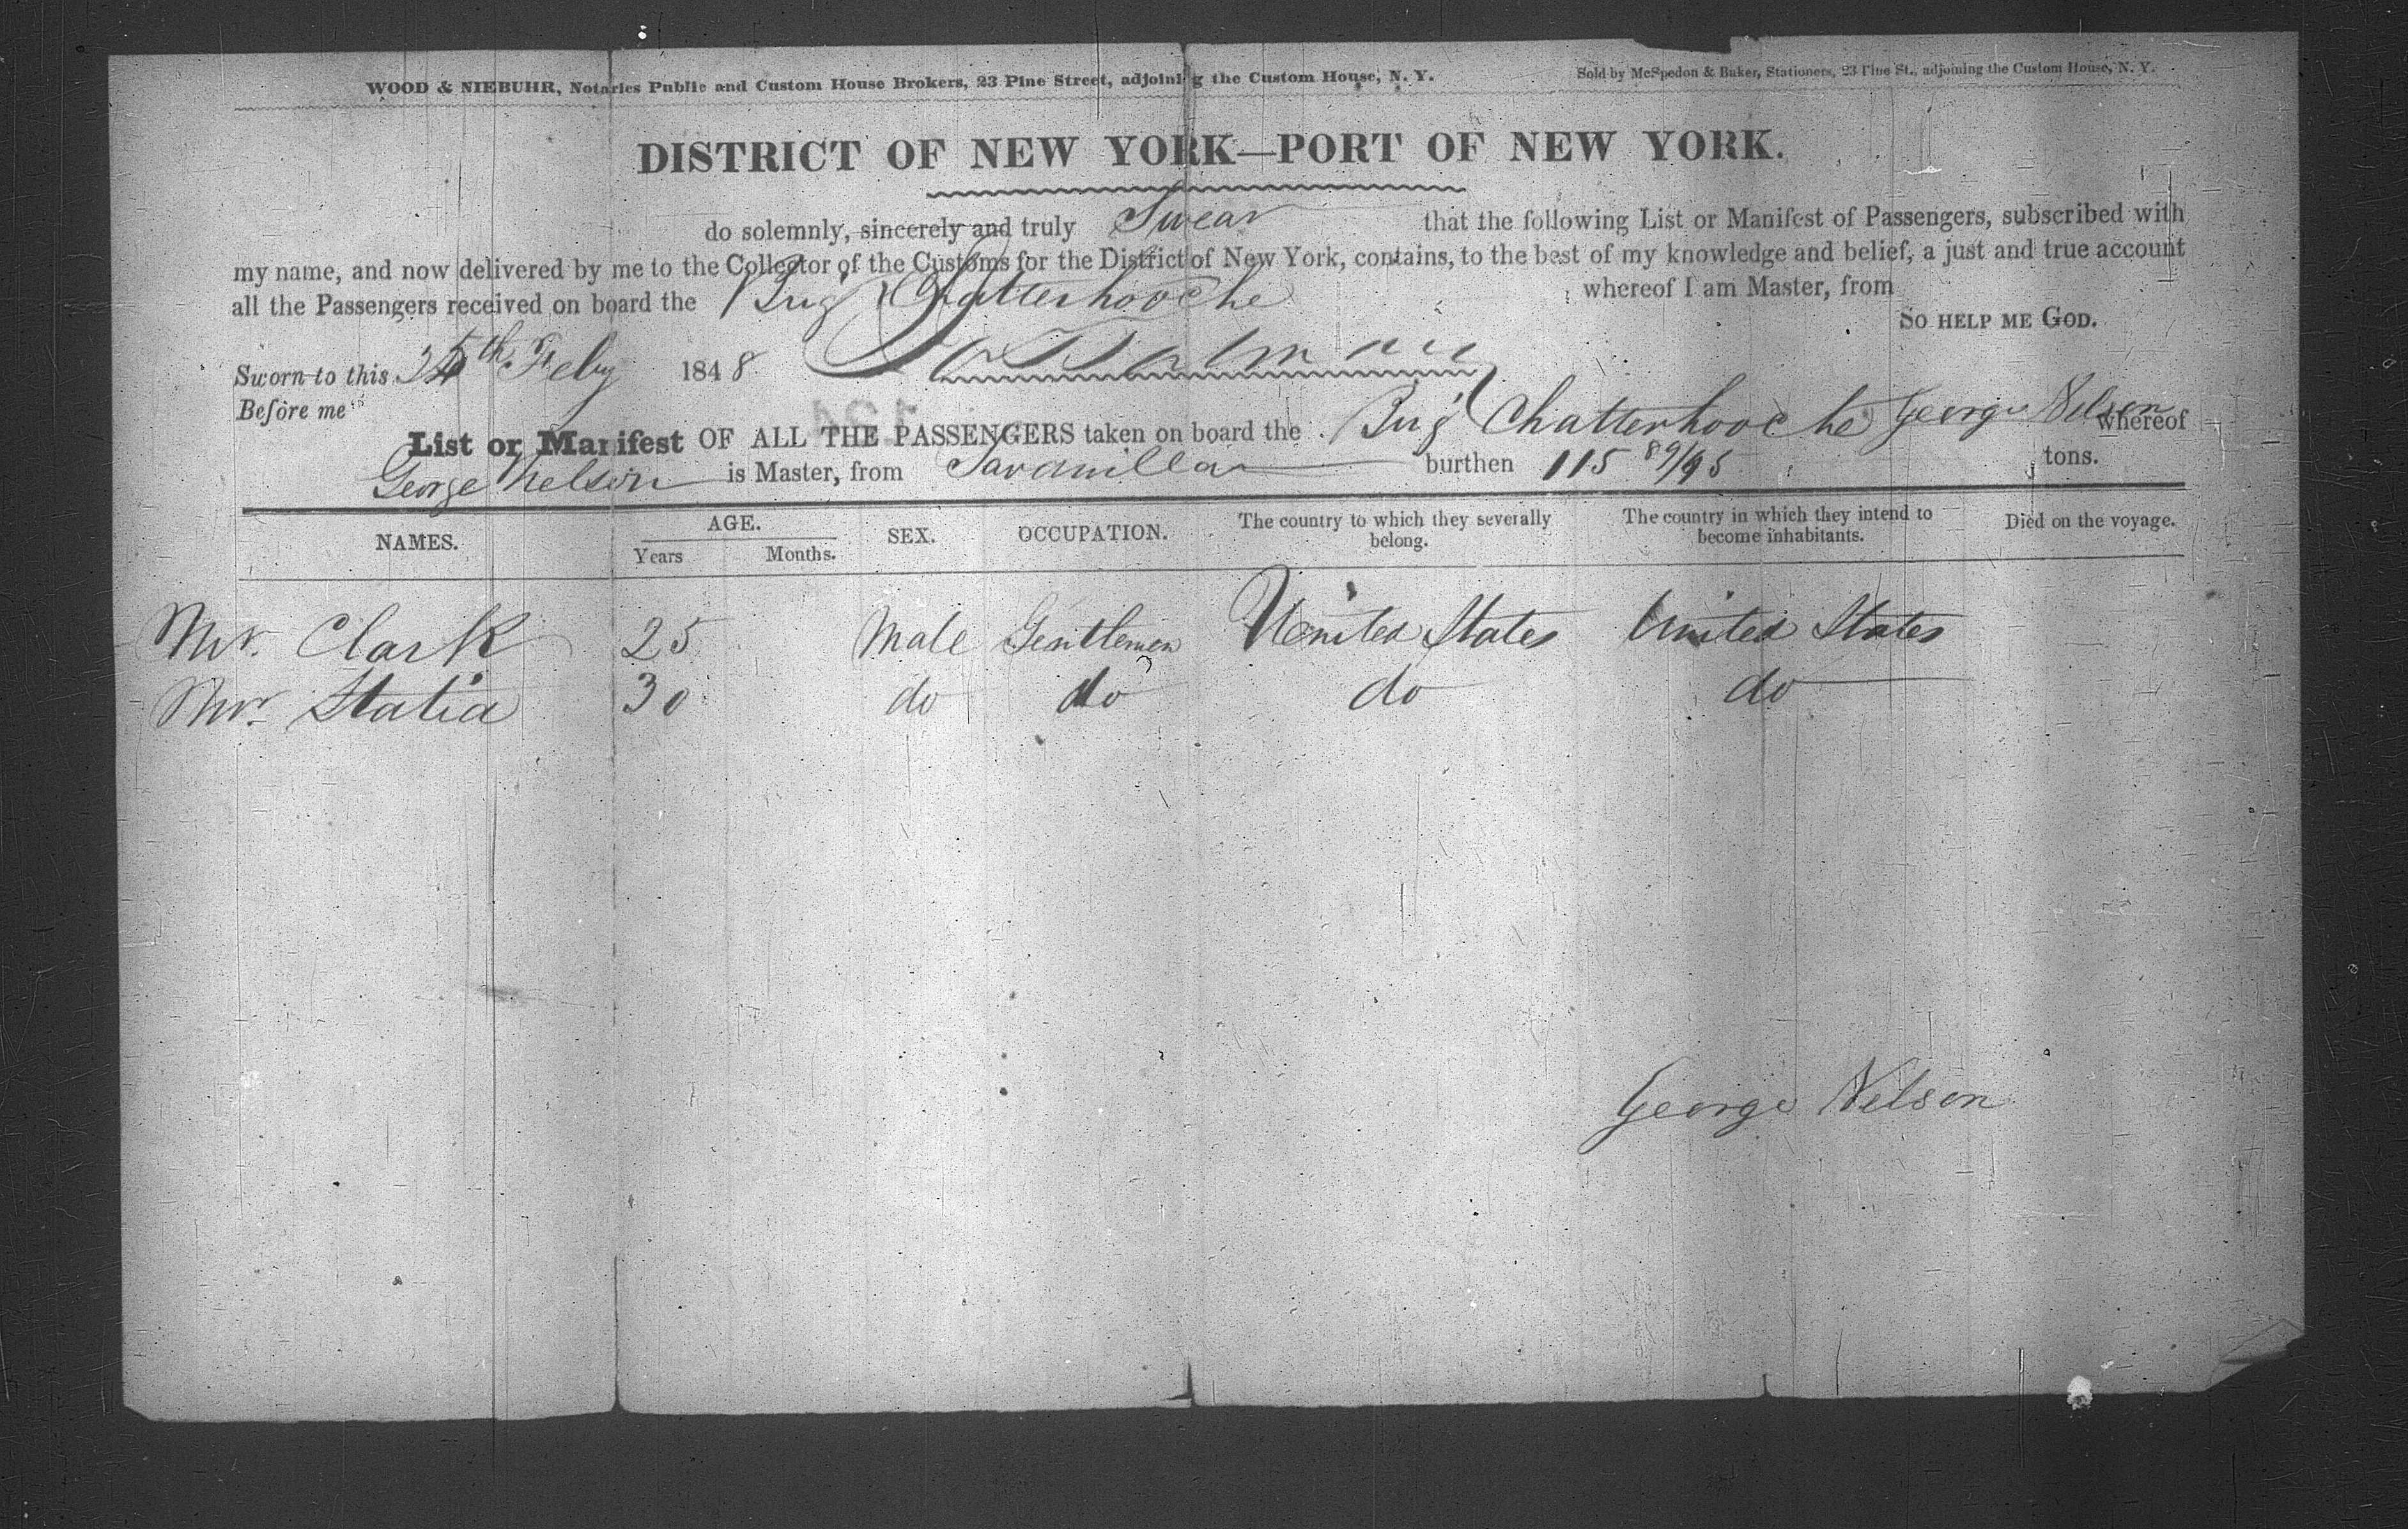 WOOD & NIEBUHR, Notaries Public and Custom House Brokers, 23 Pine Street, adjoining the Custom House, N. Y.
Sold by McSpedon & Baker, Stationers, 23 Pine St., adjoining the Custom House, N. Y.
DISTRICT OF NEW YORK—PORT OF NEW YORK.
do solemnly, sincerely and truly Swear that the following List or Manifest of Passengers, subscribed with
my name, and now delivered by me to the Collector of the Customs for the District of New York, contains, to the best of my knowledge and belief, a just and true account
all the Passengers received on board the Brig Chatterhooche whereof I am Master, from
SO HELP ME GOD.
Sworn to this th Feby 1848
Before me
List or Manifest OF ALL THE PASSENGERS taken on board the Brig Chatterhooche George Nelson whereof
George Nelson is Master, from Savanilla burthen 115 89/95 tons.
NAMES. AGE. SEX. OCCUPATION. The country to which they severally belong. The country in which they intend to become inhabitants. Died on the voyage.
Years Months.
Mr. Clark 25 Male Gentlemen United States United States
Mr Statia 30 do do do do
George Nelson